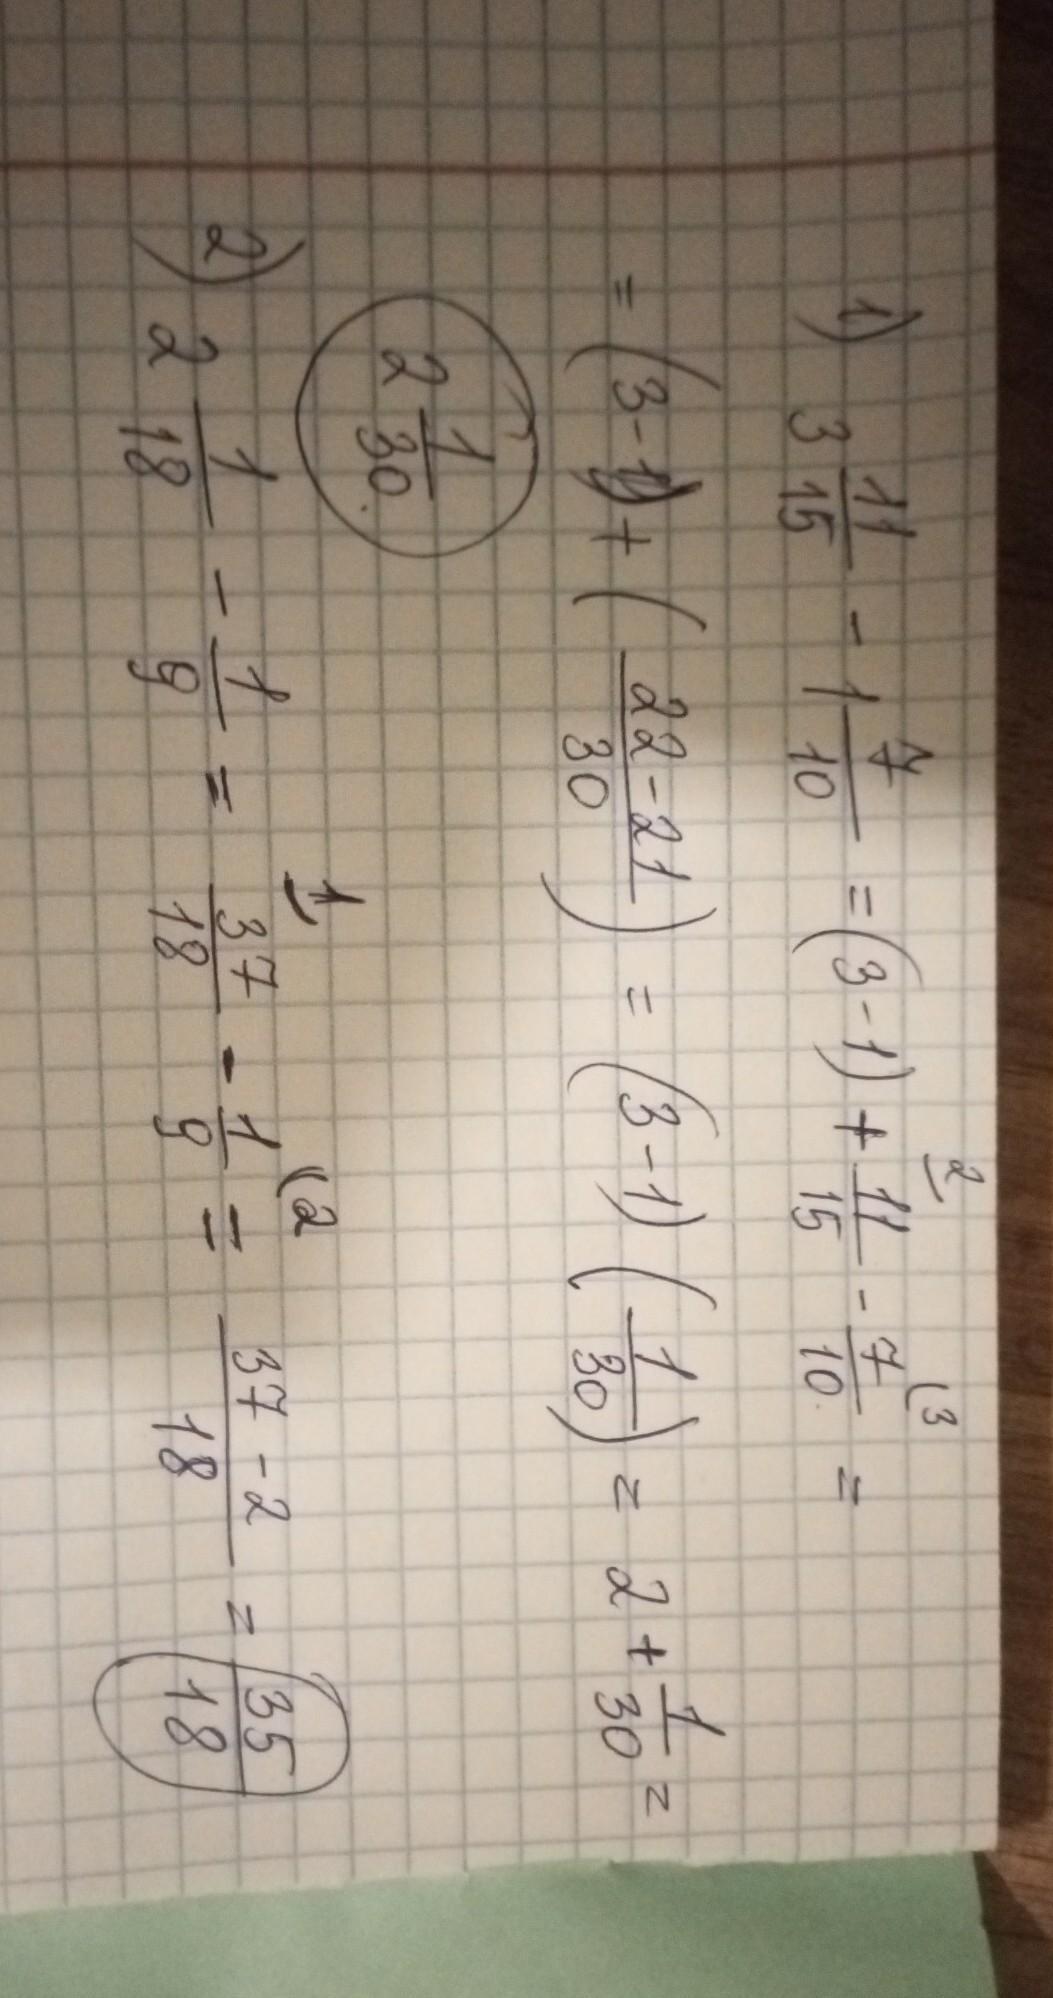 1) 3 11/15 - 1 7/10 = (3-1) + 11/15 - 7/10 =
2 (3
= (3-1) + (22-21/30) = (3-1) (1/30) = 2 + 1/30 =
2 1/30
2) 2 1/18 - 1/9 = 37/18 - 1/9 = 37-2/18 = 35/18
1 (2